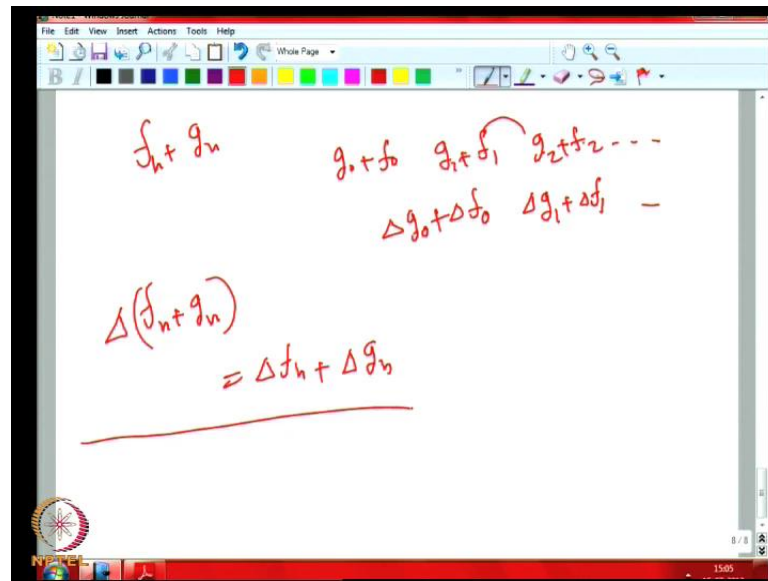 Note1 - Windows Journal
File Edit View Insert Actions Tools Help
Whole Page
B I
fₙ + gₙ g₀+f₀ g₁+f₁ g₂+f₂ ---
Δg₀+Δf₀ Δg₁+Δf₁ —
Δ(fₙ + gₙ)
= Δfₙ + Δgₙ
8 / 8
NPTEL
15:05